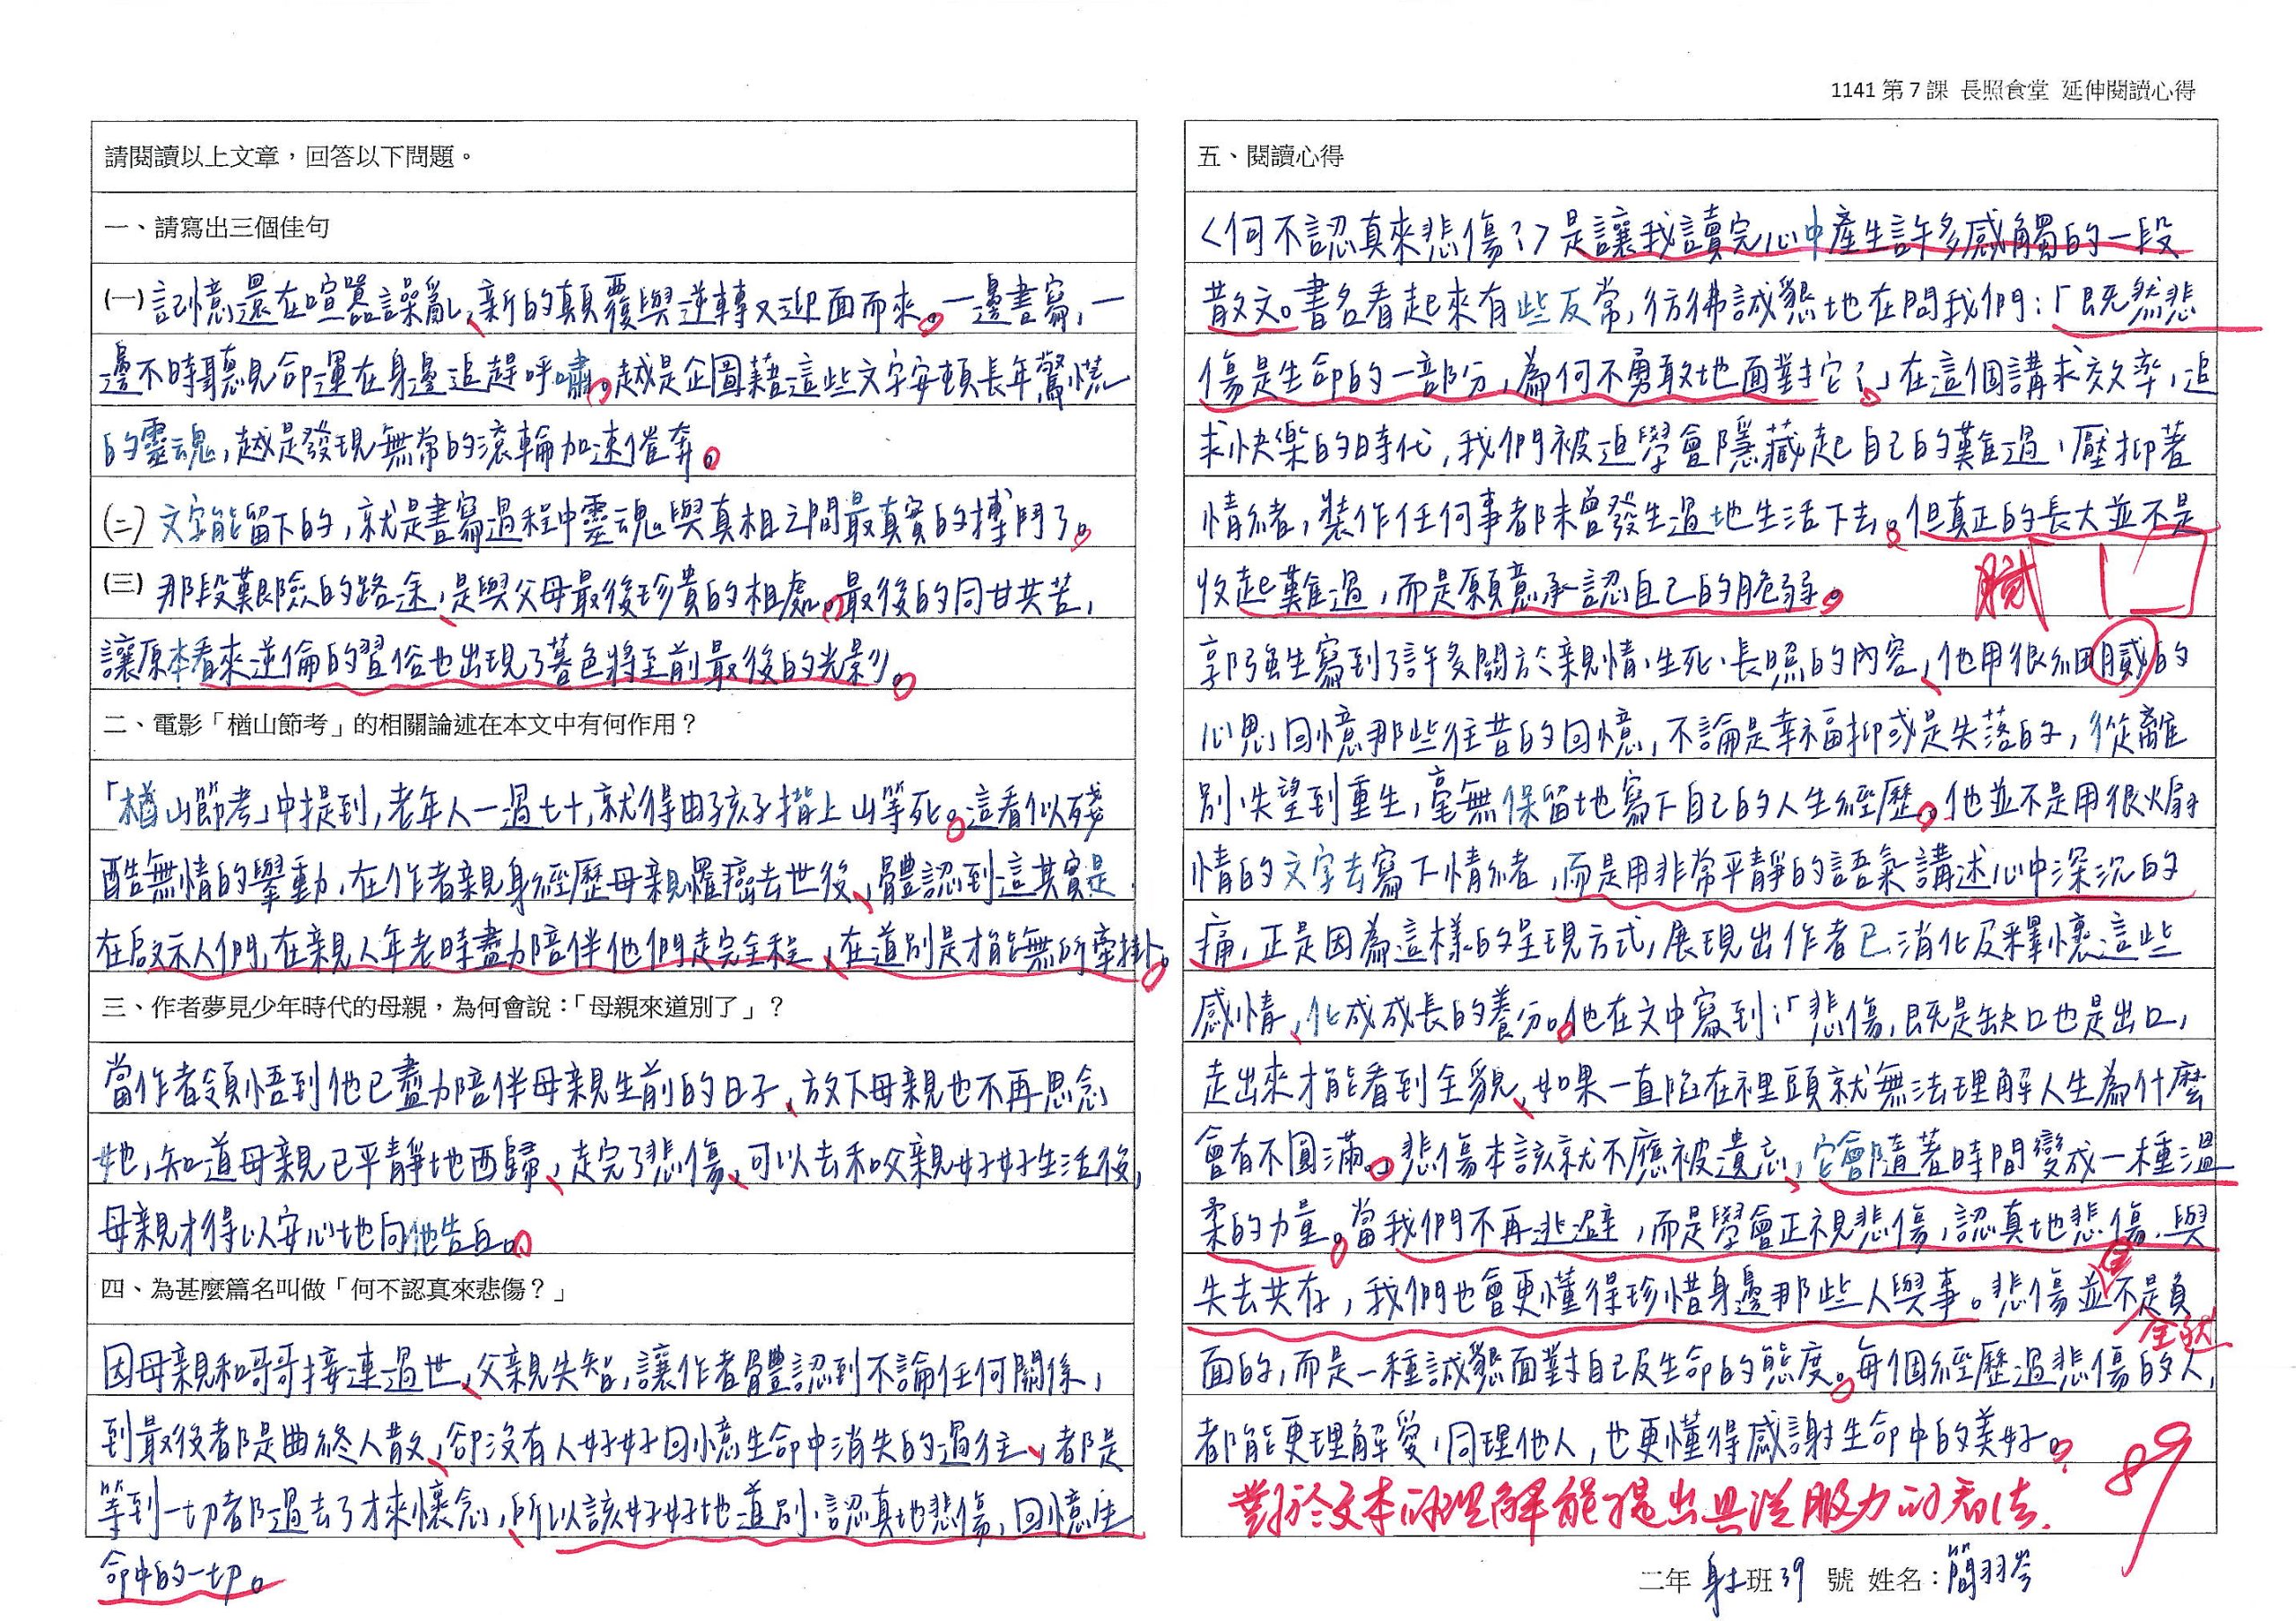 1141 第 7 課 長照食堂 延伸閱讀心得
請閱讀以上文章，回答以下問題。
一、請寫出三個佳句
(一) 記憶還在喧囂譟亂、新的顛覆與逆轉又迎面而來。一邊書寫，一
邊不時聽見命運在身邊追趕呼嘯。越是企圖藉這些文字安頓長年驚慌
的靈魂，越是發現無常的滾輪加速催奔。
(二) 文字能留下的，就是書寫過程中靈魂與真相之間最真實的搏鬥了。
(三) 那段艱險的路途、是與父母最後珍貴的相處。最後的同甘共苦，
讓原本看來逆倫的習俗也出現了暮色將至前最後的光影。
二、電影「楢山節考」的相關論述在本文中有何作用？
「楢山節考」中提到，老年人一過七十，就得由孩子揹上山等死。這看似殘
酷無情的舉動，在作者親身經歷母親罹癌去世後、體認到這其實是
在啟示人們，在親人年老時盡力陪伴他們走完全程、在道別是才能無所牽掛。
三、作者夢見少年時代的母親，為何會說：「母親來道別了」？
當作者領悟到他已盡力陪伴母親生前的日子、放下母親也不再思念
她，知道母親已平靜地西歸、走完了悲傷、可以去和父親好好生活後，
母親才得以安心地向他告丘。
四、為甚麼篇名叫做「何不認真來悲傷？」
因母親和哥哥接連過世、父親失智，讓作者體認到不論任何關係，
到最後都是曲終人散、卻沒有人好好回憶生命中消失的過往、都是
等到一切都過去了才來懷念，所以該好好地道別、認真地悲傷，回憶生
命中的一切。
五、閱讀心得
〈何不認真來悲傷？〉是讓我讀完心中產生許多感觸的一段
散文。書名看起來有些反常，彷彿誠懇地在問我們：「既然悲
傷是生命的一部分，為何不勇敢地面對它？」在這個講求效率，追
求快樂的時代，我們被迫學會隱藏起自己的難過、壓抑著
情緒，裝作任何事都未曾發生過地生活下去。但真正的長大並不是
收起難過，而是願意承認自己的脆弱。
膩
郭強生寫到了許多關於親情、生死、長照的內容、他用很細膩的
心思回憶那些往昔的回憶，不論是幸福抑或是失落的，從離
別、失望到重生，毫無保留地寫下自己的人生經歷。他並不是用很煽
情的文字去寫下情緒，而是用非常平靜的語氣講述心中深沉的
痛，正是因為這樣的呈現方式，展現出作者已消化及釋懷這些
感情、化成成長的養分。他在文中寫到：「悲傷，既是缺口也是出口，
走出來才能看到全貌、如果一直陷在裡頭就無法理解人生為什麼
會有不圓滿。」悲傷本該就不應被遺忘、它會隨著時間變成一種溫
柔的力量。當我們不再逃避，而是學會正視悲傷，認真地悲傷、與
失去共存，我們也會更懂得珍惜身邊那些人與事。悲傷並不是負
全然
面的，而是一種誠懇面對自己及生命的態度。每個經歷過悲傷的人，
都能更理解愛，同理他人，也更懂得感謝生命中的美好。
89
對於文本的理解能提出具說服力的看法.
二年 射 班 39 號 姓名：簡羽岑